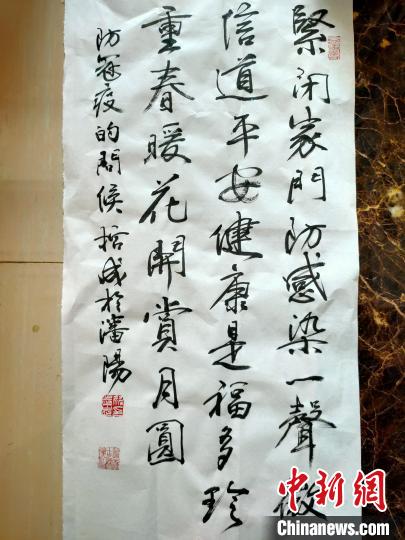 緊闭家門防感染一聲微
信道平安健康是福多珍
重春暖花開賞月圓
防冠疫的問候 成於瀋陽
中新網
Chinanews.com